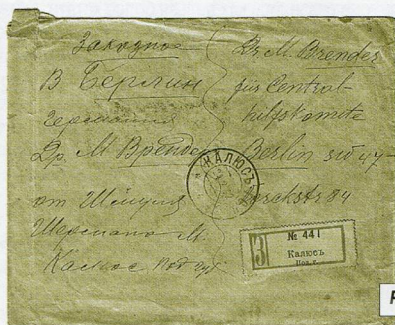 Заказное
В Берлин
Германия
Др. М. Бренде
от Шмуля
Шермана М.
Калюс Под губ
Dr M. Brender
für Central-
hilfskomite
Berlin SW 47-
Yorckstr 84
КАЛЮСЪ
З
№ 441
Калюсъ
Под. г.